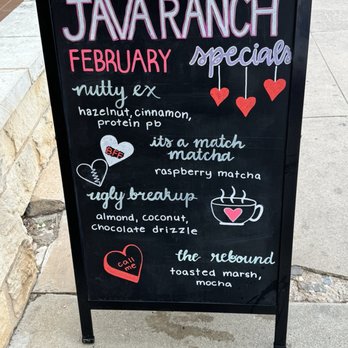 JAVA RANCH
FEBRUARY specials
nutty ex
hazelnut, cinnamon,
protein pb
BFF
its a match
matcha
raspberry matcha
ugly breakup
almond, coconut,
chocolate drizzle
call
me
the rebound
toasted marsh,
mocha